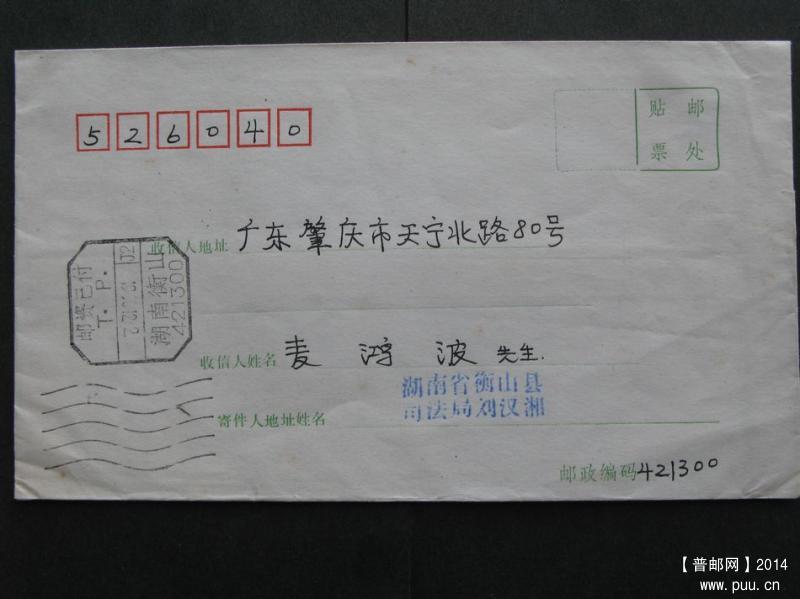 526040
贴 邮
票 处
收信人地址 广东肇庆市天宁北路80号
邮资已付
T. P.
湖南衡山
421300
收信人姓名 麦 鸿 波 先生.
湖南省衡山县
司法局刘汉湘
寄件人地址姓名
邮政编码 421300
【普邮网】2014
www.puu.cn